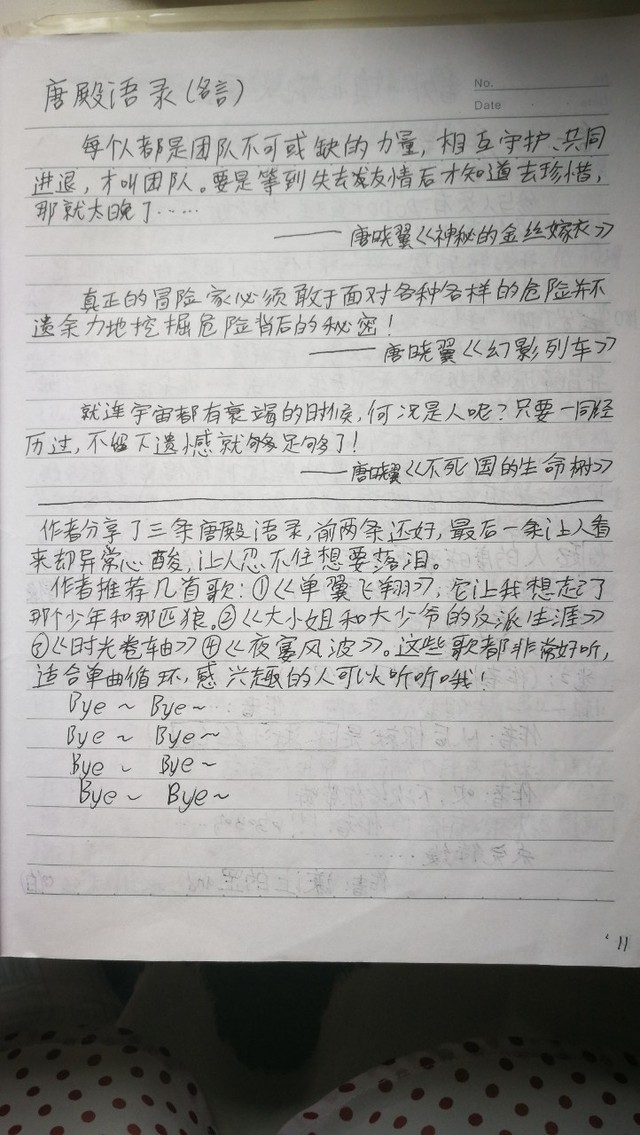 No.
Date
唐殿语录(名言)
每个人都是团队不可或缺的力量,相互守护、共同
进退,才叫团队。要是等到失去战友情后才知道去珍惜,
那就太晚了……
——唐晓翼《神秘的金丝嫁衣》
真正的冒险家必须敢于面对各种各样的危险并不
遗余力地挖掘危险背后的秘密!
——唐晓翼《幻影列车》
就连宇宙都有衰竭的时候,何况是人呢?只要一同经
历过,不留下遗憾就够足够了!
——唐晓翼《不死国的生命树》
作者分享了三条唐殿语录,前两条还好,最后一条让人看
来却异常心酸,让人忍不住想要落泪。
作者推荐几首歌:①《单翼飞翔》,它让我想起了
那个少年和那匹狼。②《大小姐和大少爷的反派生涯》
③《时光卷轴》④《夜宴风波》。这些歌都非常好听,
适合单曲循环,感兴趣的人可以听听哦!
Bye~ Bye~
Bye~ Bye~
Bye~ Bye~
Bye~ Bye~
11